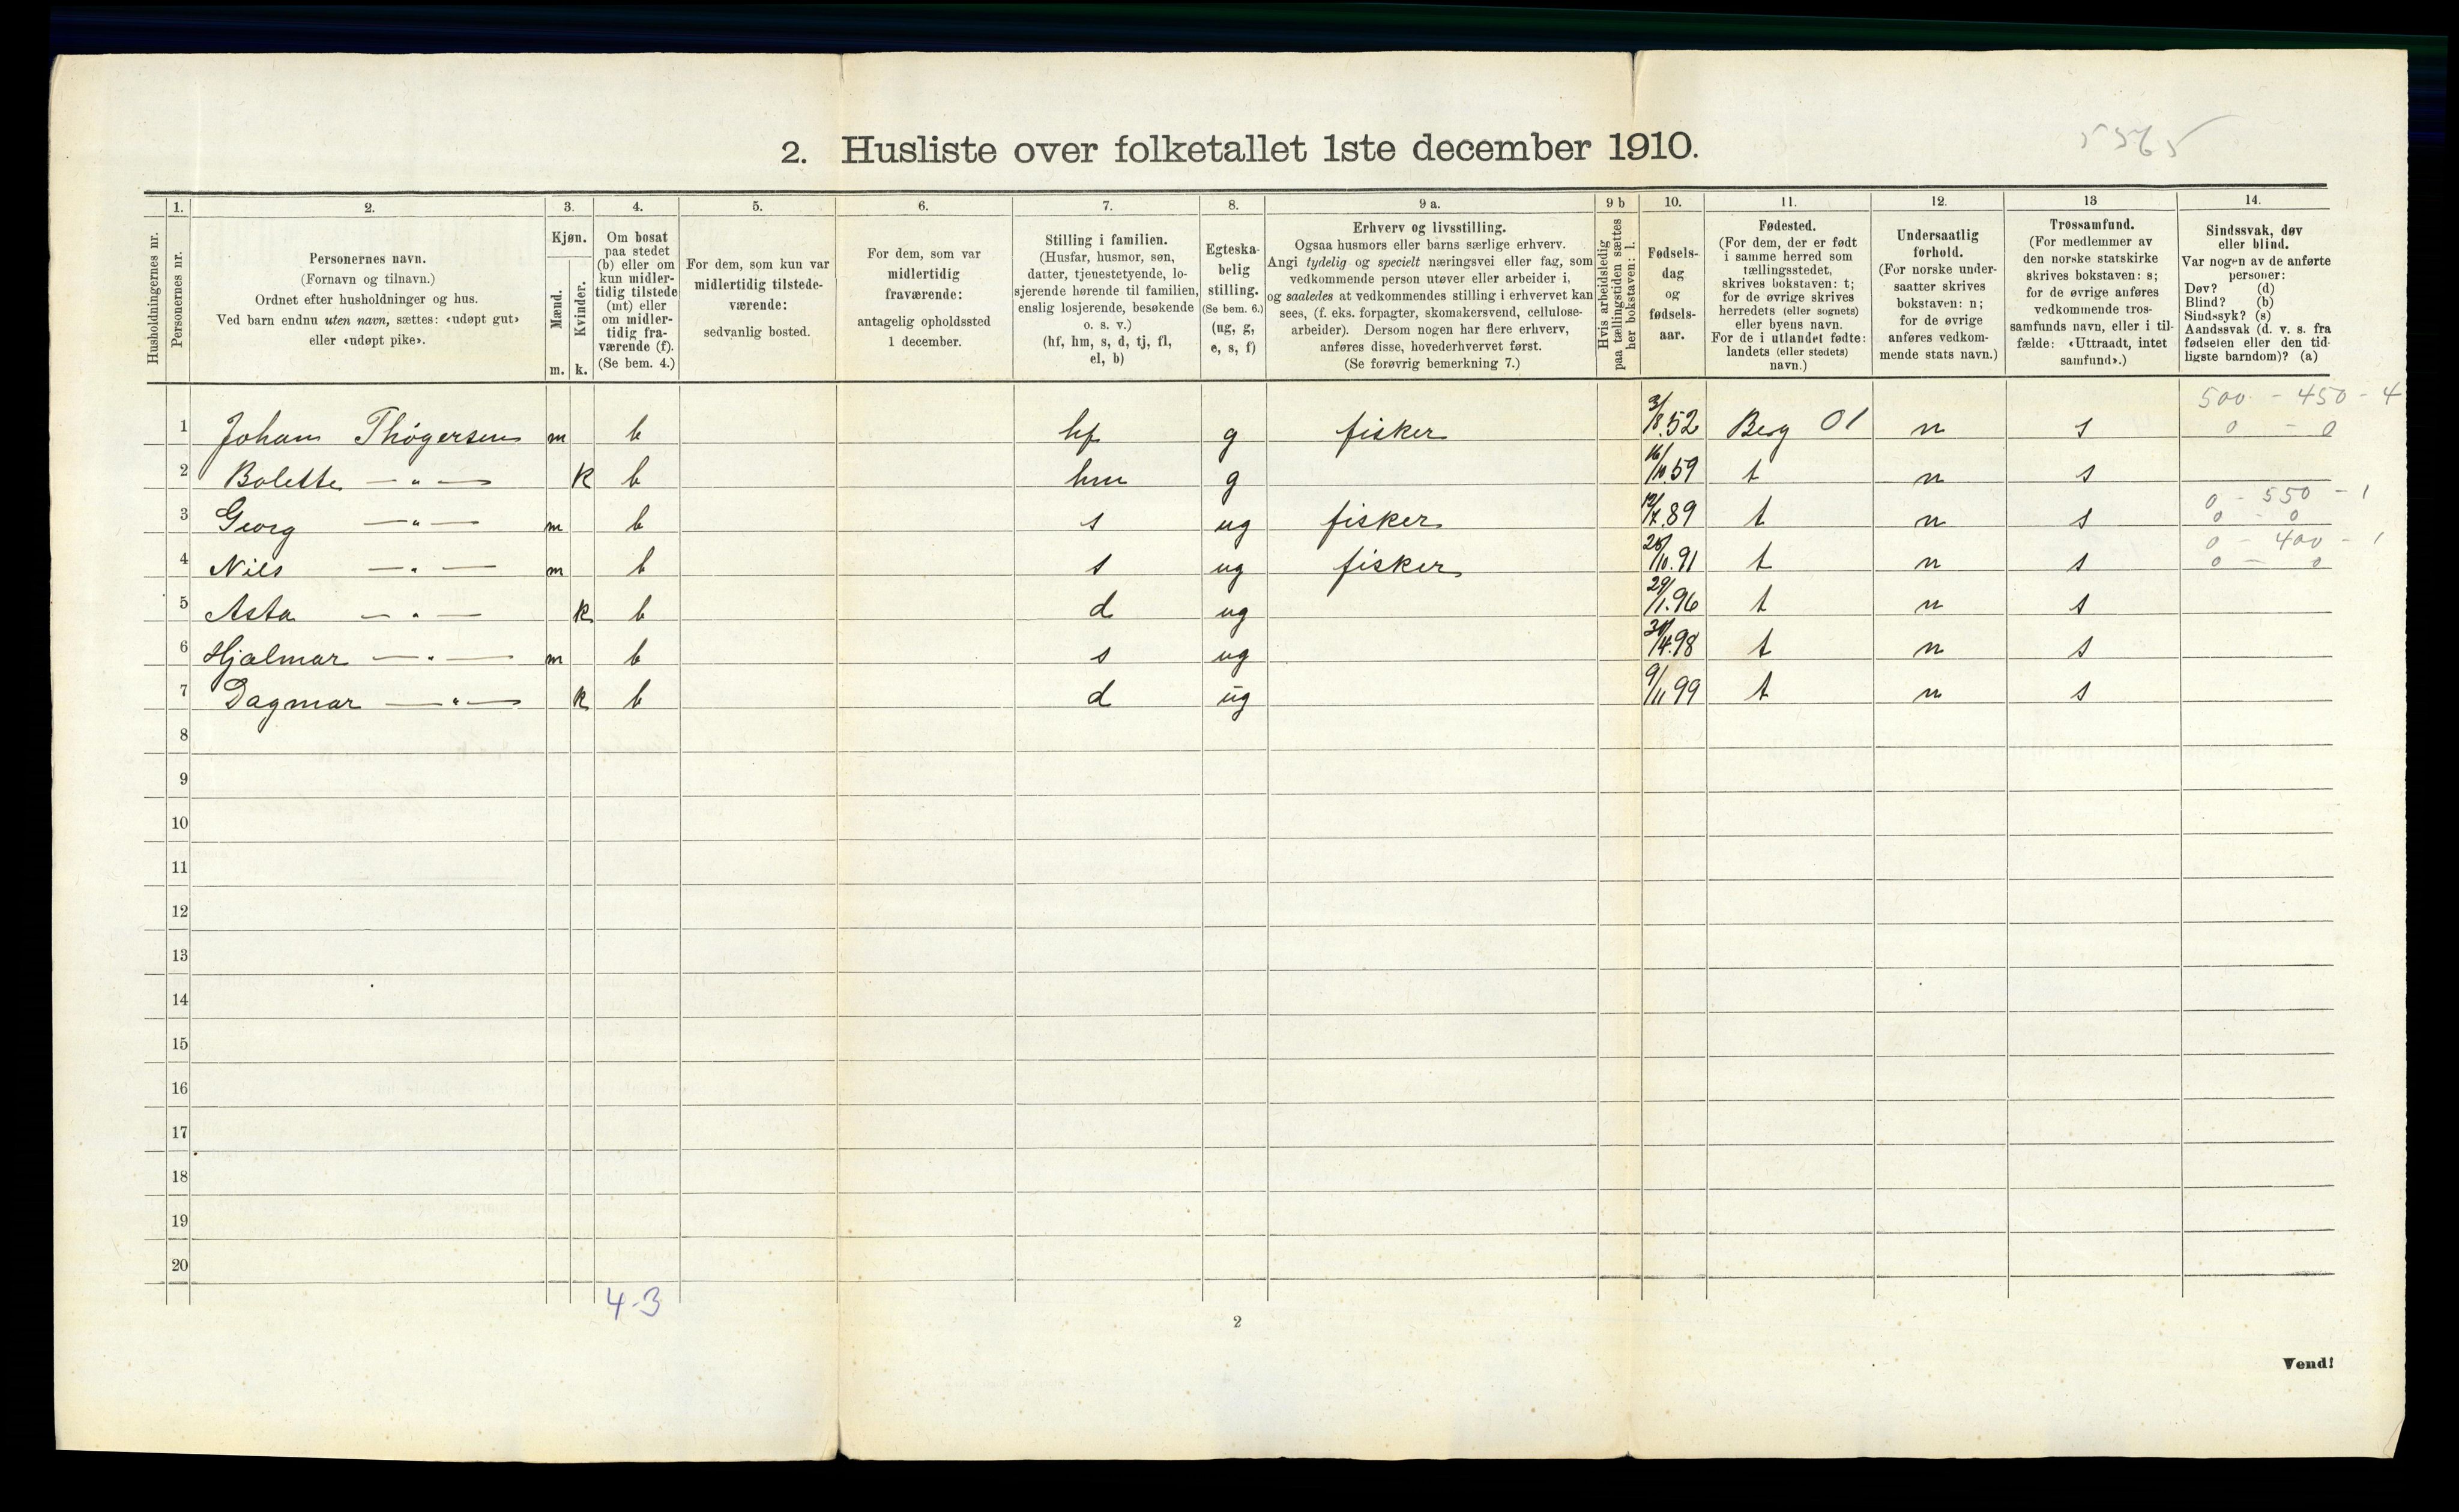 5365
2. Husliste over folketallet 1ste december 1910.
Husholdningernes nr.
1.
Personernes nr.
2.
Personernes navn.
(Fornavn og tilnavn.)
Ordnet efter husholdninger og hus.
Ved barn endnu uten navn, sættes: «udøpt gut»
eller «udøpt pike».
3.
Kjøn.
Mænd.
Kvinder.
m. k.
4.
Om bosat
paa stedet
(b) eller om
kun midler-
tidig tilstede
(mt) eller
om midler-
tidig fra-
værende (f).
(Se bem. 4.)
5.
For dem, som kun var
midlertidig tilstede-
værende:
sedvanlig bosted.
6.
For dem, som var
midlertidig
fraværende:
antagelig opholdssted
1 december.
7.
Stilling i familien.
(Husfar, husmor, søn,
datter, tjenestetyende, lo-
sjerende hørende til familien,
enslig losjerende, besøkende
o. s. v.)
(hf, hm, s, d, tj, fl,
el, b)
8.
Egteska-
belig
stilling.
(Se bem. 6.)
(ug, g,
e, s, f)
9 a.
Erhverv og livsstilling.
Ogsaa husmors eller barns særlige erhverv.
Angi tydelig og specielt næringsvei eller fag, som
vedkommende person utøver eller arbeider i,
og saaledes at vedkommendes stilling i erhvervet kan
sees, (f. eks. forpagter, skomakersvend, cellulose-
arbeider). Dersom nogen har flere erhverv,
anføres disse, hovederhvervet først.
(Se forøvrig bemerkning 7.)
9 b
Hvis arbeidsledig
paa tællingstiden sættes
her bokstaven: l.
10.
Fødsels-
dag
og
fødsels-
aar.
11.
Fødested.
(For dem, der er født
i samme herred som
tællingsstedet,
skrives bokstaven: t;
for de øvrige skrives
herredets (eller sognets)
eller byens navn.
For de i utlandet fødte:
landets (eller stedets)
navn.)
12.
Undersaatlig
forhold.
(For norske under-
saatter skrives
bokstaven: n;
for de øvrige
anføres vedkom-
mende stats navn.)
13
Trossamfund.
(For medlemmer av
den norske statskirke
skrives bokstaven: s;
for de øvrige anføres
vedkommende tros-
samfunds navn, eller i til-
fælde: «Uttraadt, intet
samfund».)
14.
Sindssvak, døv
eller blind.
Var nogen av de anførte
personer:
Døv? (d)
Blind? (b)
Sindssyk? (s)
Aandssvak (d. v. s. fra
fødselen eller den tid-
ligste barndom)? (a)
500 - 450 - 4
1 Johan Thøgersen m b hf g fisker 3/8.52 Berg 01 n s 0 - 0
2 Bolette — " — k b hm g 16/10.59 t n s
0 - 550 - 1
3 Georg — " — m b s ug fisker 12/4.89 t n s 0 - 0
0 - 400 - 1
4 Nils — " — m b s ug fisker 28/10.91 t n s 0 - 0
5 Asta — " — k b d ug 29/1.96 t n s
6 Hjalmar — " — m b s ug 30/4.98 t n s
7 Dagmar — " — k b d ug 9/11 99 t n s
8
9
10
11
12
13
14
15
16
17
18
19
20
4-3
2
Vend!